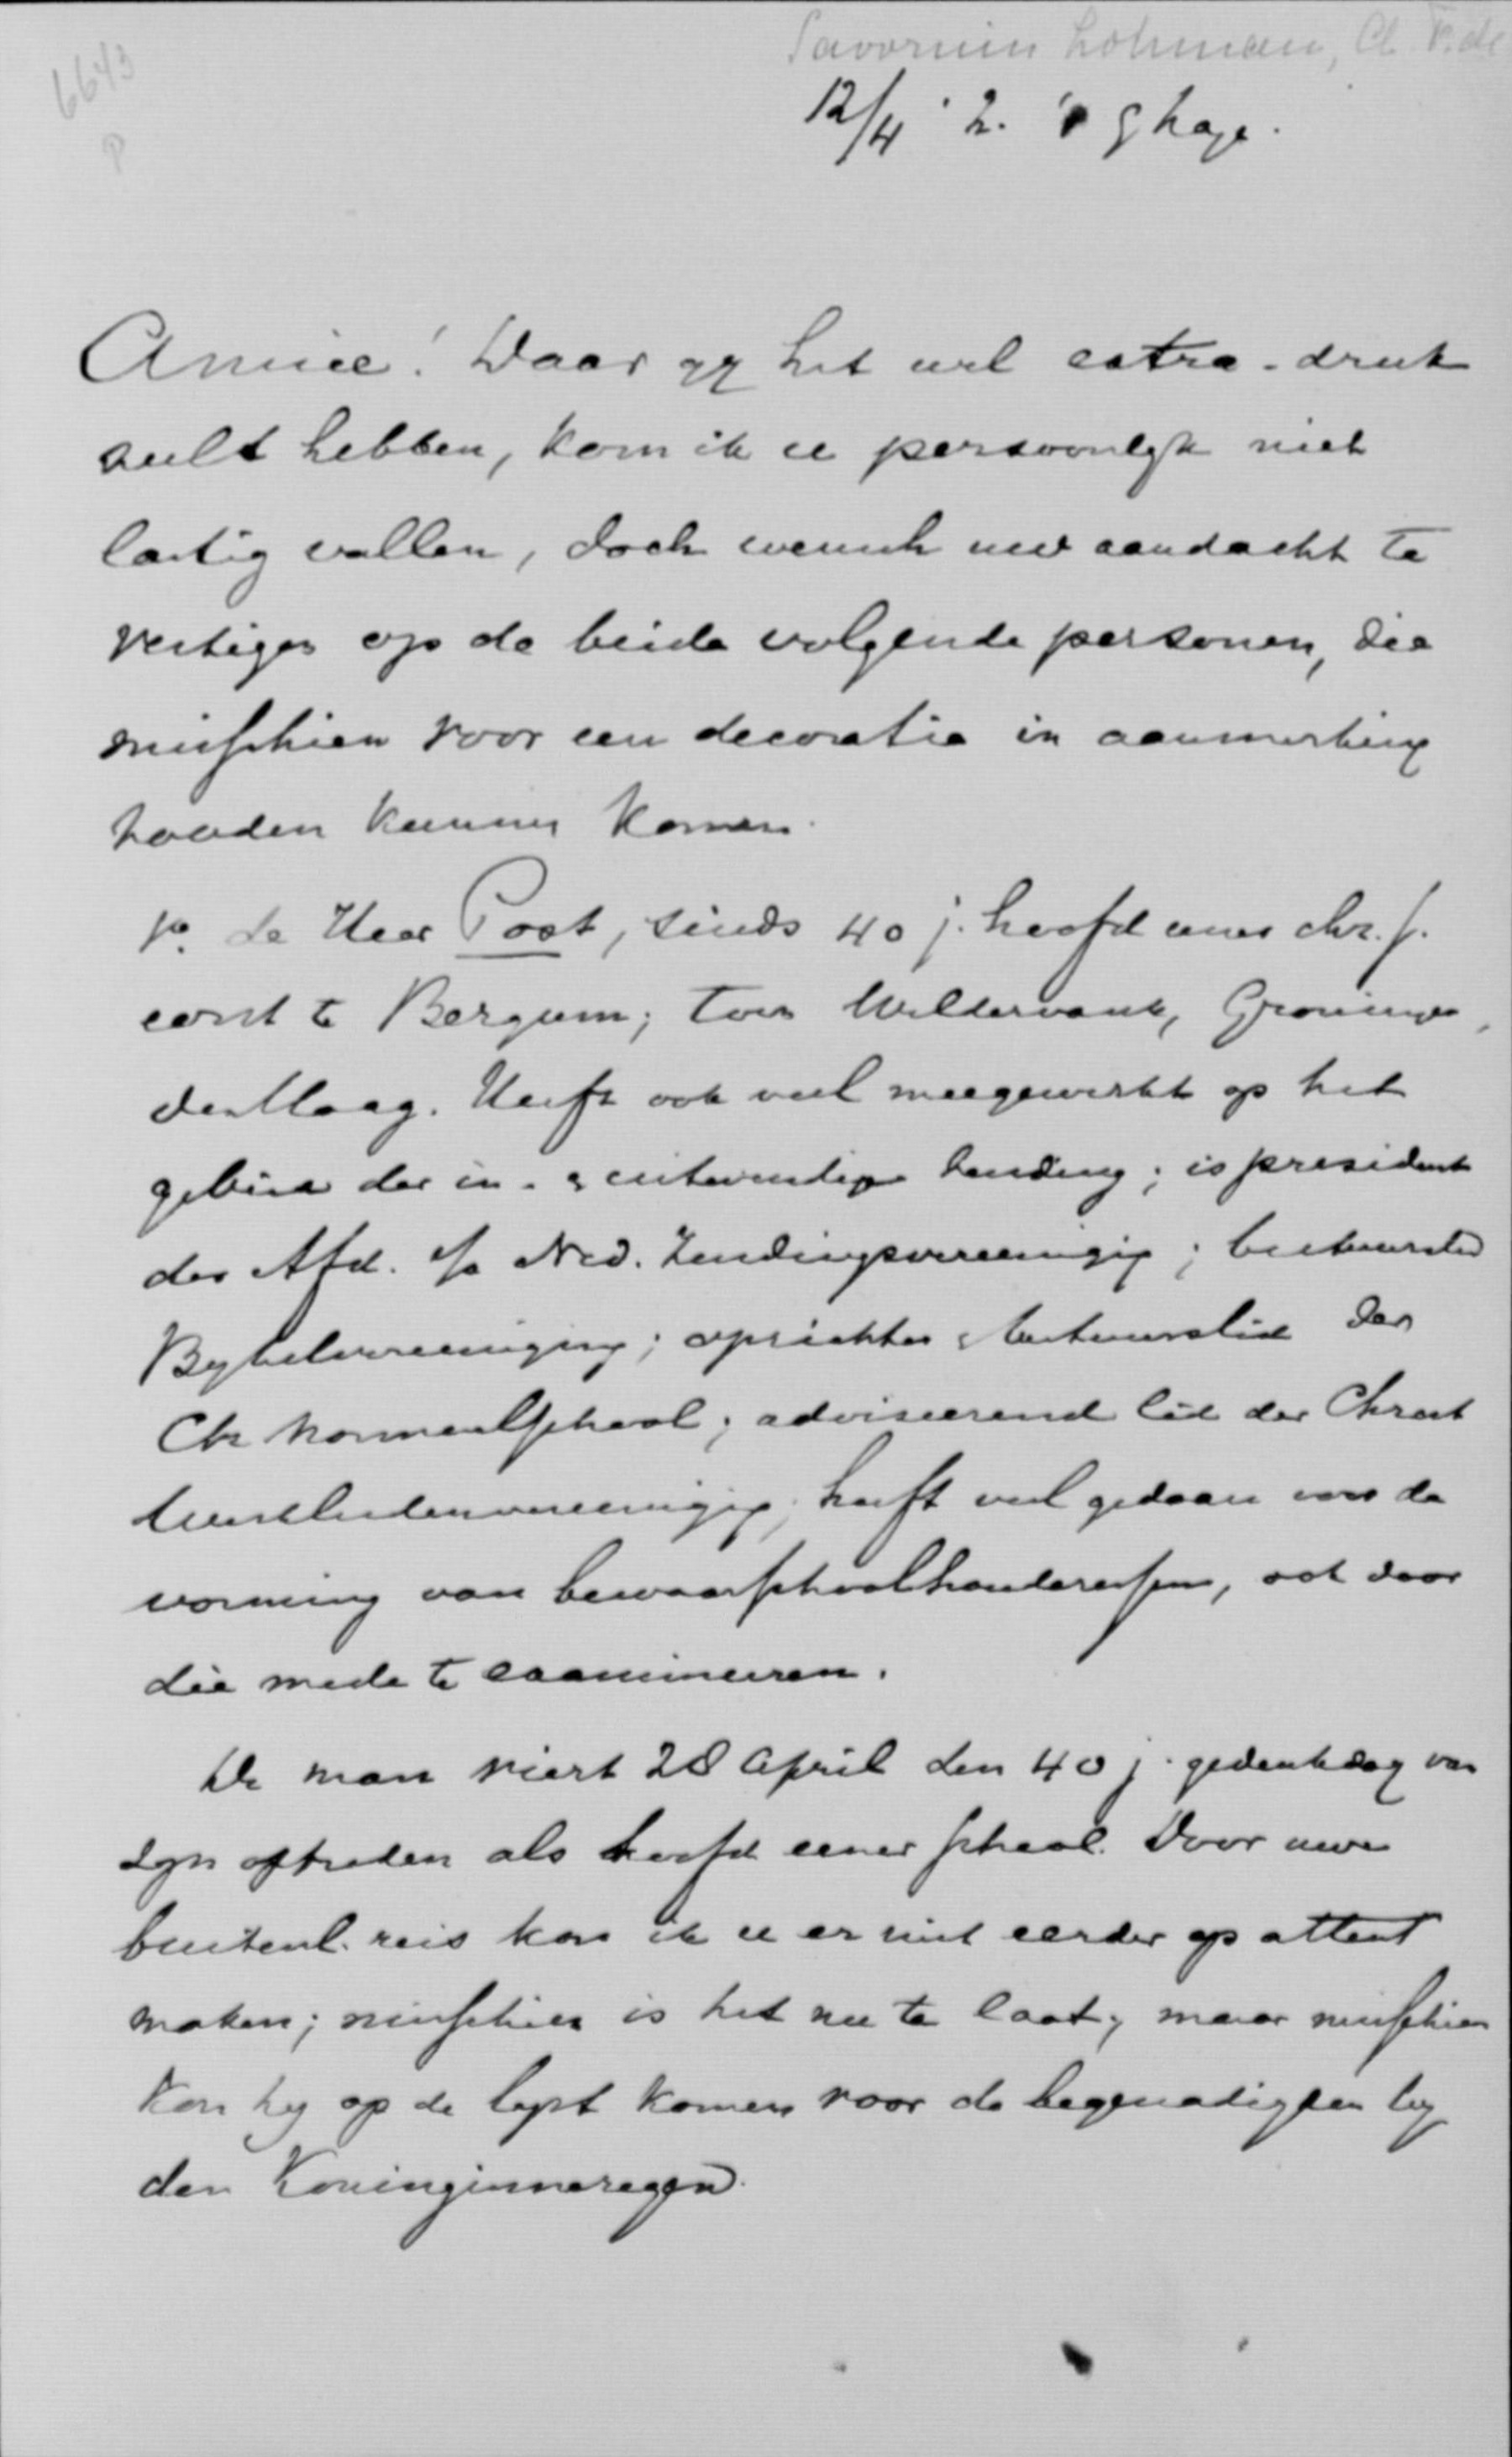 Savornin Lohman, A. F. de
6643
P
12/4 '2. 's Ghage.
Amice! Daar gij het wel extra-druk
zult hebben, kom ik u persoonlijk niet
lastig vallen, doch wensch uw aandacht te
vestigen op de beide volgende personen, die
misschien voor een decoratie in aanmerking
zouden kunnen komen.
1o. de Heer Post, sinds 40 j. hoofd eener chr. s.
eerst te Bergum; toen Wildervank, Groningen,
den Haag. Heeft ook veel meegewerkt op het
gebied der in- & uitwendige zending; is president
der Afd. Ned. Zendingsvereeniging; bestuurslid
Bijbelvereeniging; oprichter & bestuurslid der
Chr Normaalschool; adviseerend lid der Christ
Werkliedenvereeniging; heeft veel gedaan voor de
vorming van bewaarschoolhouderessen, ook door
die mede te examineeren.
De man viert 28 April den 40 j. gedenkdag van
zijn optreden als hoofd eener school. Door uwe
buitenl. reis kon ik u er niet eerder op attent
maken; misschien is het nu te laat; maar misschien
kan hij op de lijst komen voor de begenadigden bij
den Koninginneregen.